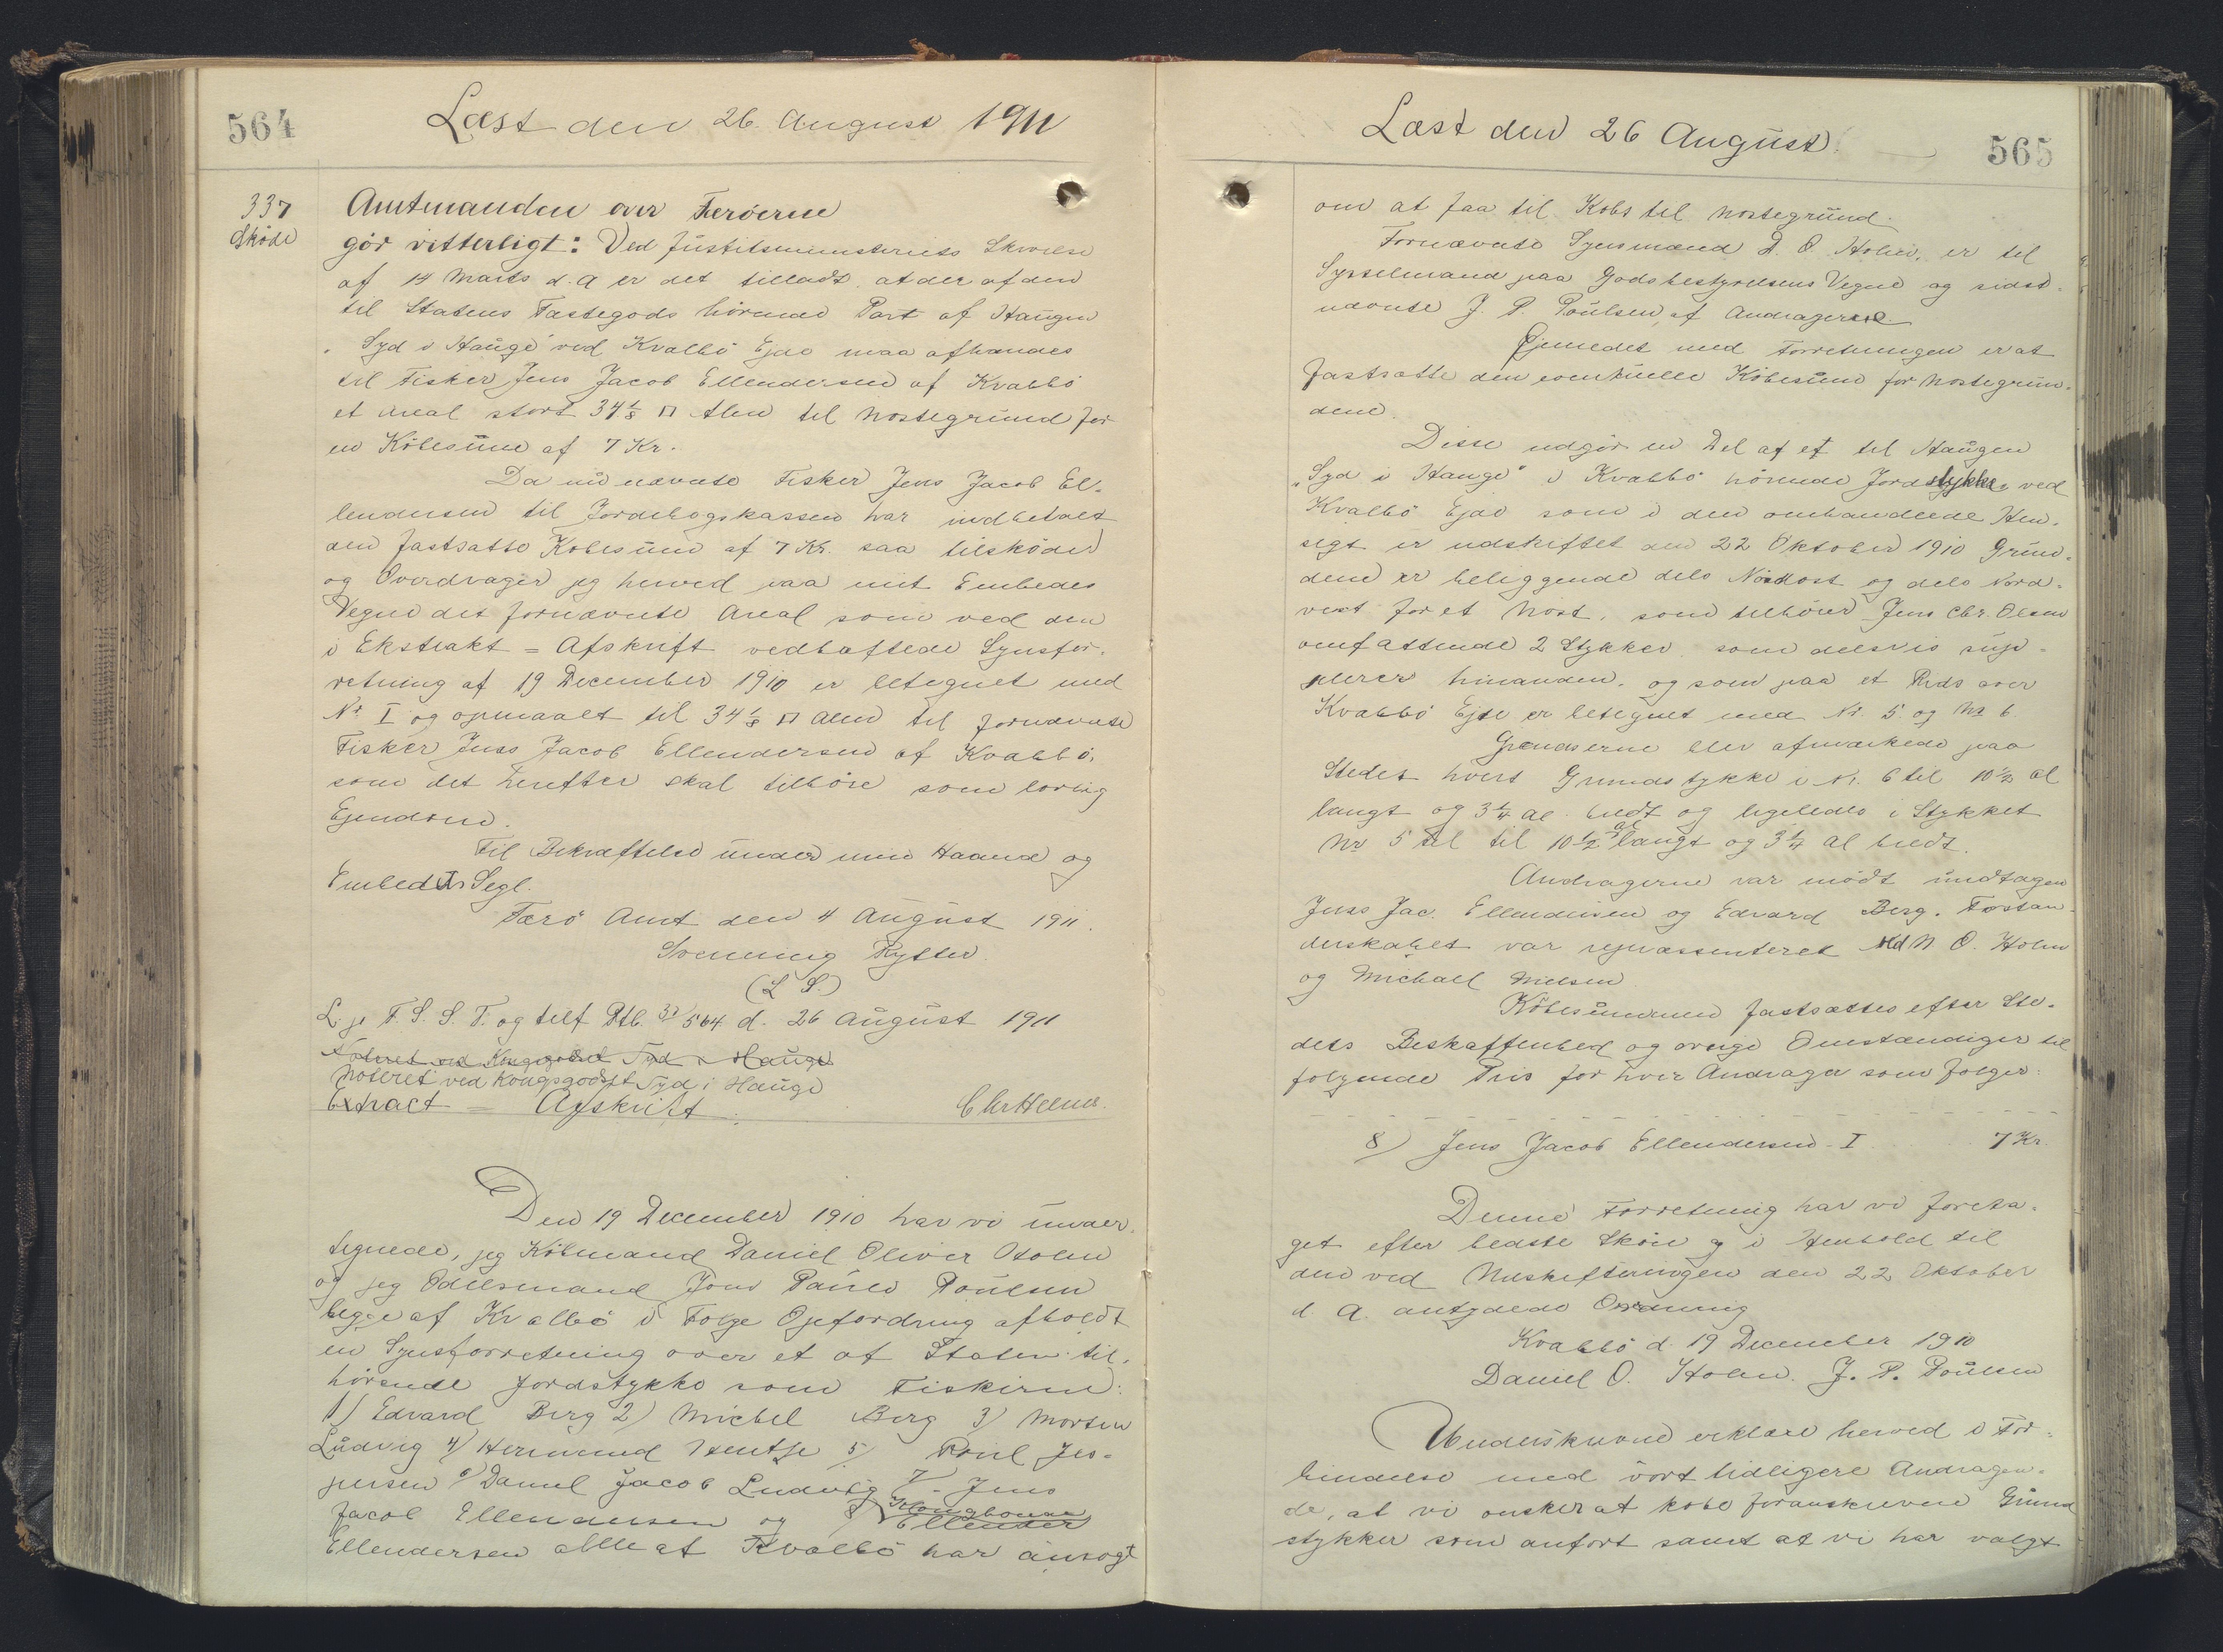 564
Læst den 26. August 1911
337
Sköde
Amtmanden over Færöerne
gör vitterligt: Ved Justitsministeriets Skrivelse
af 14 Marts d. A er det tilladt, at der af den
til Statens Fæstegods hörende Part af Haugen
"Syd i Hauge" ved Kvalbö Ejde maa afhændes
til Fisker Jens Jacob Ellendersen af Kvalbö
et Areal stort 34 1/8 □ Alen til Nöstegrund for
en Köbesum af 7 Kr.
Da nu nævnte Fisker Jens Jacob El-
lendersen til Jordebogskassen har indbetalt
den fastsatte Köbesum af 7 Kr. saa tilsköder
og Overdrager jeg herved paa mit Embedes
Vegne det fornævnte Areal som ved den
i Ekstrakt = Afskrift vedhæftede Synsfor-
retning af 19 December 1910 er betegnet med
Nr. I og opmaalt til 34 1/8 □ Alen til fornævnte
Fisker Jens Jacob Ellendersen af Kvalbö,
som det herefter skal tilhöre som lovlig
Ejendom.
Til Bekræftelse under min Haand og
Embeds Segl.
Færö Amt den 4 August 1911.
Svenning Rytter.
(L S.)
L. p. F. S. S. T. og tilf Ptb. 31/564 d. 26 August 1911
Noteret ved Kongsgodset Syd i Hauge
Noteret ved Kongsgodset Syd i Hauge
Extract = Afskrift.
Den 19 December 1910 har vi under-
tegnede, jeg Köbmand Daniel Oliver Holm
og jeg Odelsmand Joen Paulo Poulsen
begge af Kvalbö i Fölge Opfordring afholdt
en Synsforretning over et af Staten til-
hörende Jordstykke som Fiskerne:
1) Edvard Berg 2) Michel Berg 3) Morten
Ludvig 4) Hermund Hentze 5) Poul Jes-
persen 6) Daniel Jacob Ludvig 7) Jens
Jacob Ellendersen og 8) Ellender
Ellendersen alle af Kvalbö har ansögt
Læst den 26 August
565
om at faa til Köbs til Nöstegrund.
Fornævnte Synsmænd D. O. Holm, er til
Sysselmand paa Godsbestyrelsens Vegne og sidst-
nævnte J. P. Poulsen, af Andragerne
Öjemedet med Forretningen er at
fastsætte den eventuelle Köbesum for Nöstegrun-
dene.
Disse udgör en Del af et til Haugen
"Syd i Hauge" i Kvalbö hörende Jordstykke ved
Kvalbö Ejde som i den omhandlede Hen-
sigt er udskiftet den 22 Oktober 1910 Grun-
dene er beliggende dels Nordost og dels Nord-
vest for et Nöst, som tilhörer Jens Chr. Olsen
omfattende 2 Stykker, som delsvis sup-
plerer hinanden, og som paa et Rids over
Kvalbö Ejde er betegnet med Nr. 5 og Nr 6.
Grændserne blev afmærkede paa
Stedet hvert Grundstykke i Nr. 6 til 10 1/2 Al
langt og 3 1/4 Al. bredt og ligeledes i Stykket
Nr 5 til til 10 1/2 al langt og 3 1/4 Al bredt.
Andragerne var mödt undtagen
Jens Jac. Ellendersen og Edvard Berg. Forstan-
derskabet var repræssenteret ved N. O. Holm
og Michael Nielsen
Köbesummen fastsættes efter Ste-
dets Beskaffenhed og övrige Omstændiger til
folgende Pris for hver Andrager som fölger:
8) Jens Jacob Ellendersen - I 7 Kr.
Denne Forretning har vi foreta-
get efter bedste Skön og i Henhold til
den ved Udskiftningen den 22 Oktober
d. A. antydede Ordning
Kvalbö d. 19 December 1910
Daniel O. Holm. J. P. Poulsen
Underskrevne erklære herved i For-
bindelse med vort tidligere Andragen-
de, at vi önsker at köbe foranskrevne Grund
stykker som anfört samt at vi har valgt